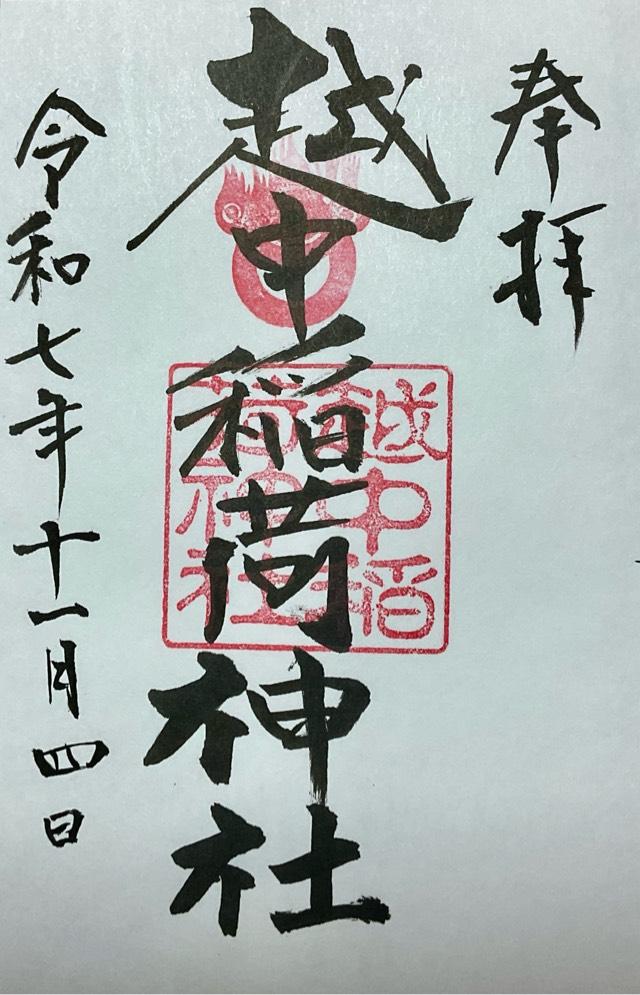 奉拝
越中稲荷神社
越中稲
荷神社
令和七年十一月四日